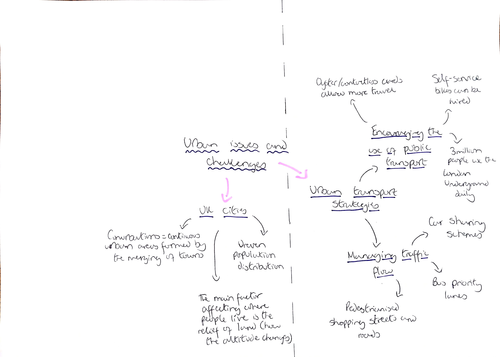 Urban issues and
challenges
UK Cities
Conurbations = continuous
urban areas formed by
the merging of towns
Uneven
population
distribution
The main factor
affecting where
people live is the
relief of land (how
the altitude changes)
Urban transport
strategies
Encouraging the
use of public
transport
Oyster/contactless cards
allow more travel
Self-service
bikes can be
hired
3 million
people use the
London
Underground
daily
Managing traffic
flow
Car sharing
schemes
Bus priority
lanes
Pedestrianised
shopping streets and
roads